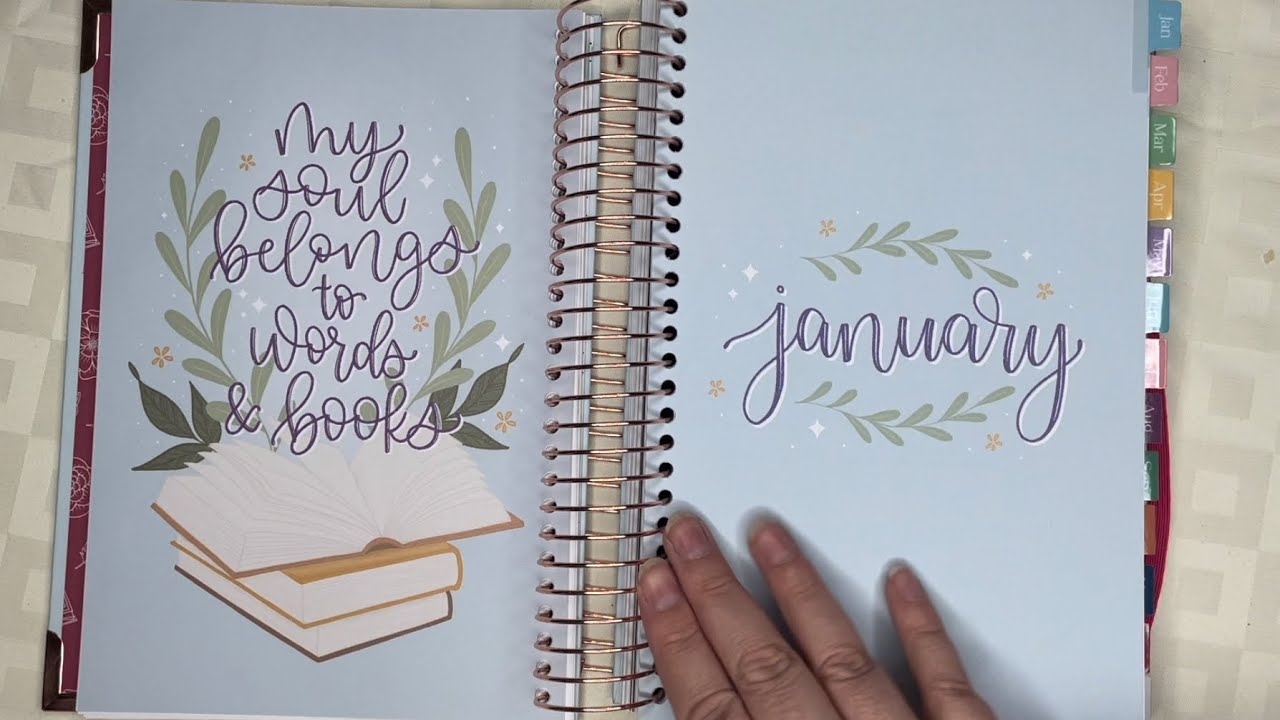 my
soul
belongs
to
words
& books
january
Jan
Feb
Mar
Apr
Aug